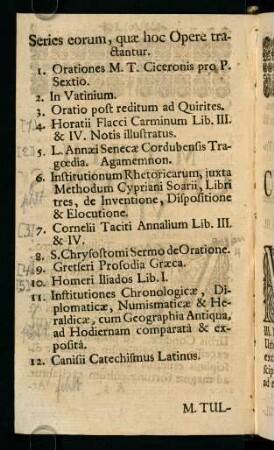 Series eorum, quæ hoc Opere tra-
ctantur.
1. Orationes M. T. Ciceronis pro P.
Sextio.
2. In Vatinium.
3. Oratio post reditum ad Quirites.
4. Horatii Flacci Carminum Lib. III.
& IV. Notis illustratus.
5. L. Annæi Senecæ Cordubensis Tra-
gœdia. Agamemnon.
6. Institutionum Rhetoricarum, juxta
Methodum Cypriani Soarii, Libri
tres, de Inventione, Dispositione
& Elocutione.
7. Cornelii Taciti Annalium Lib. III.
& IV.
8. S. Chrysostomi Sermo de Oratione.
9. Gretseri Prosodia Græca.
10. Homeri Iliados Lib. I.
11. Institutiones Chronologicæ, Di-
plomaticæ, Numismaticæ & He-
raldicæ, cum Geographia Antiqua,
ad Hodiernam comparatâ & ex-
positâ.
12. Canisii Catechismus Latinus.
M. TUL-